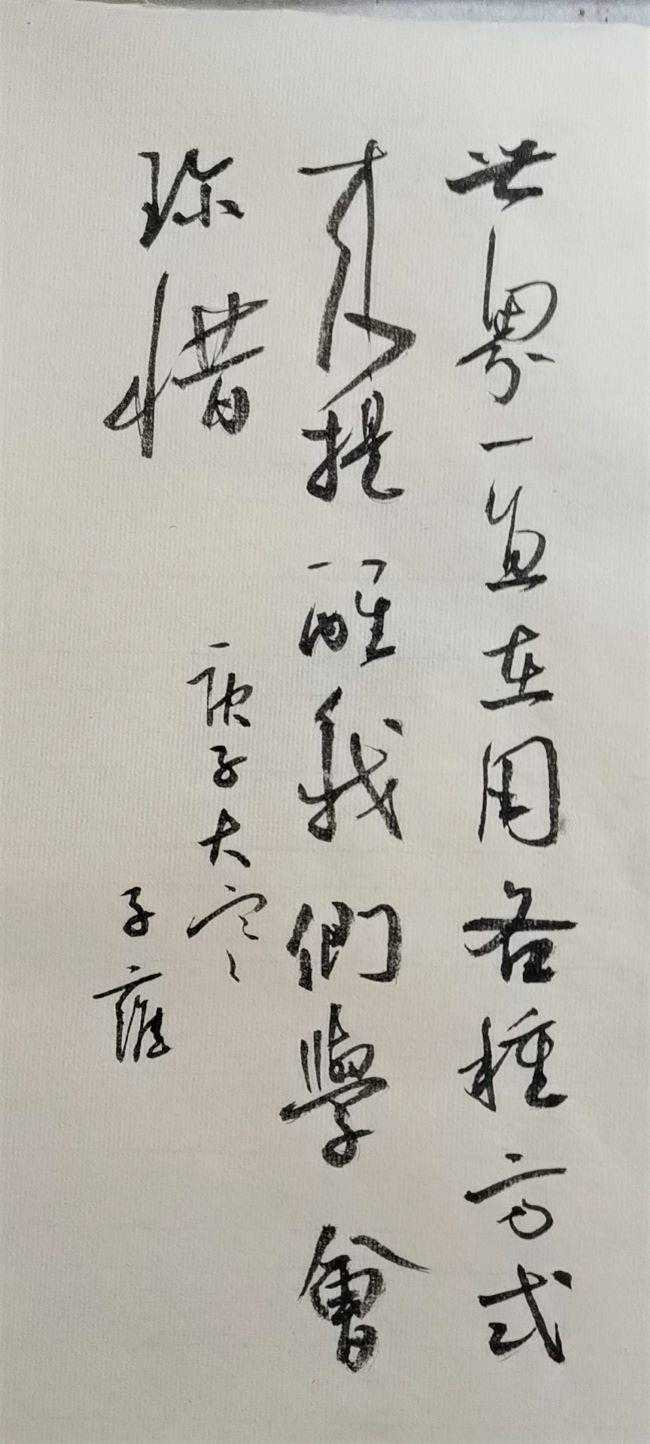 世界一直在用各種方式
来提醒我們學會
珍惜
庚子大寒
子雍